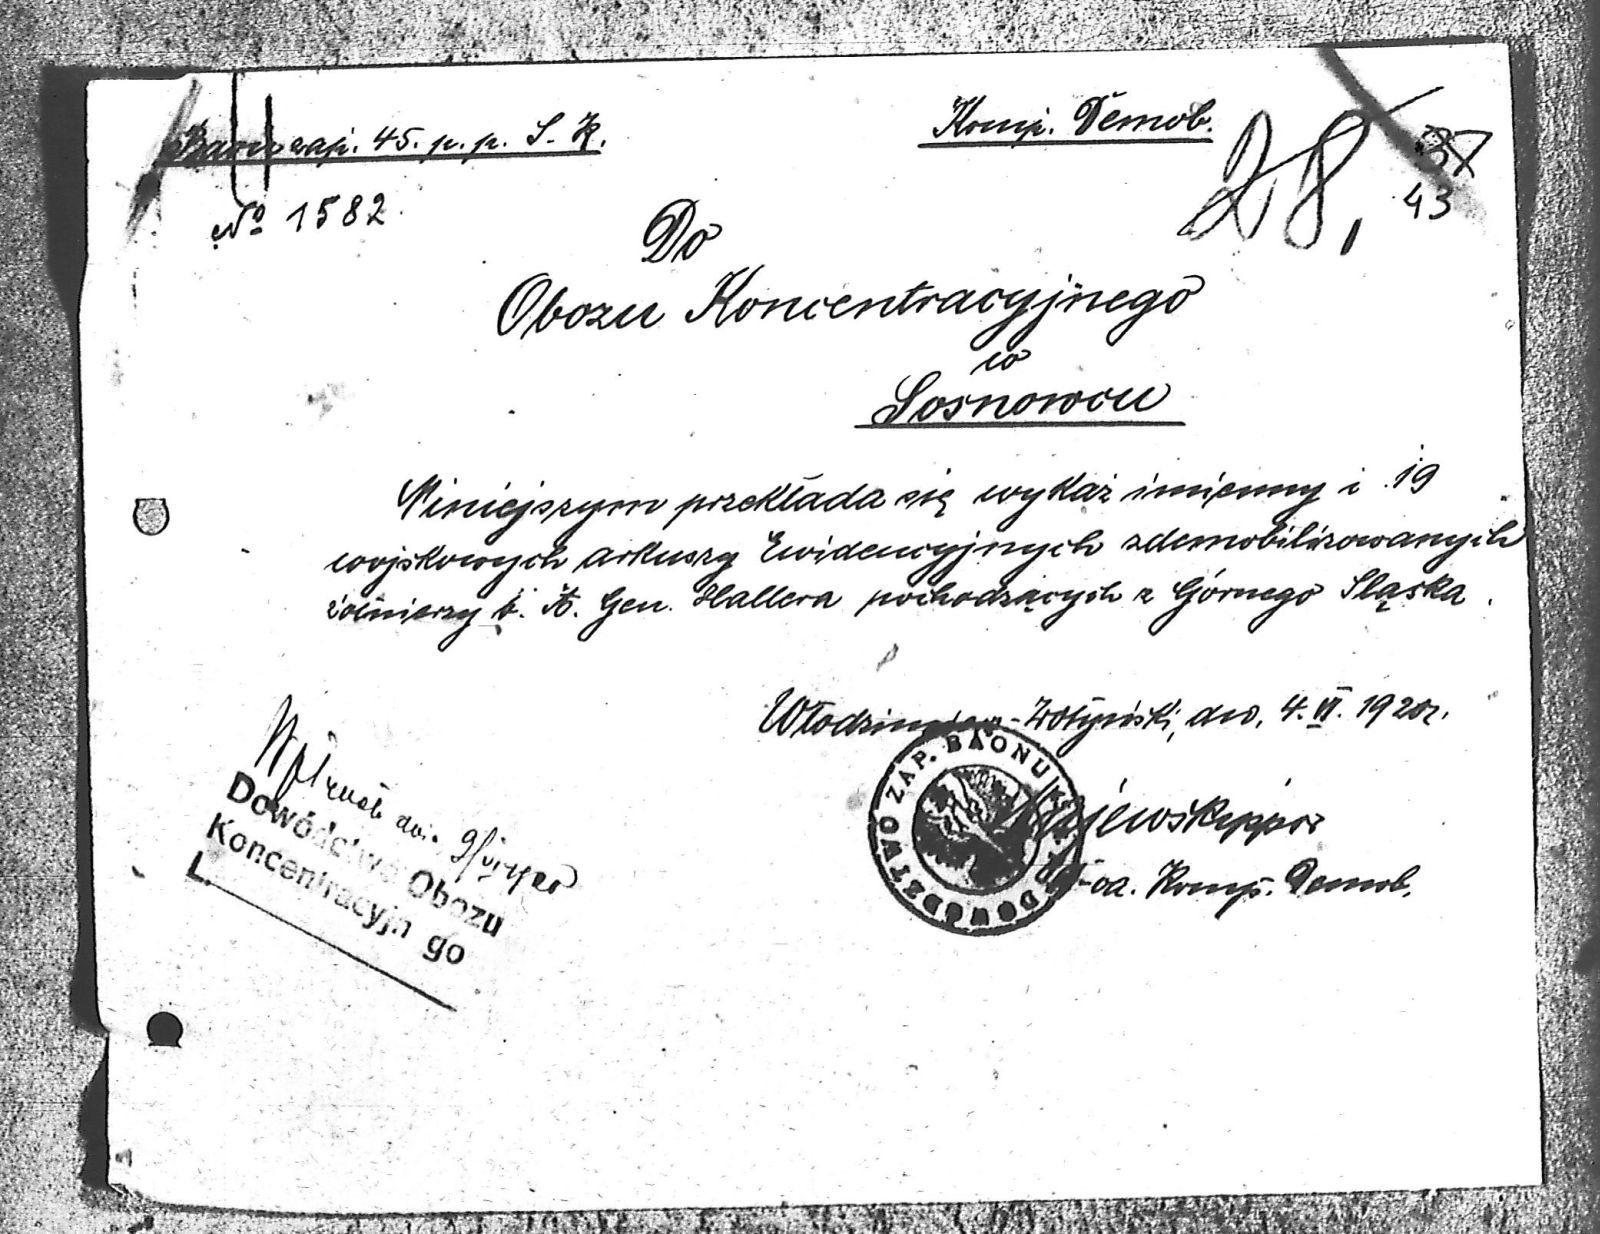 Baon zap. 45. p. p. S. K.
Komp. Demob.
28,
37
43
№ 1582
Do
Obozu Koncentracyjnego
w
Sosnowcu
Niniejszym przekłada się wykaz imienny i 19
wojskowych arkuszy Ewidencyjnych zdemobilizowanych
żołnierzy b. A. Gen. Hallera pochodzących z Górnego Sląska.
Włodzimierz-Wołyński, dn. 4. VI. 1920r.
DOWÓDZTWO ZAP. BAONU
Komp. Demob.
Wpłynęło dn.
Dowództwo Obozu
Koncentracyjn go
L.